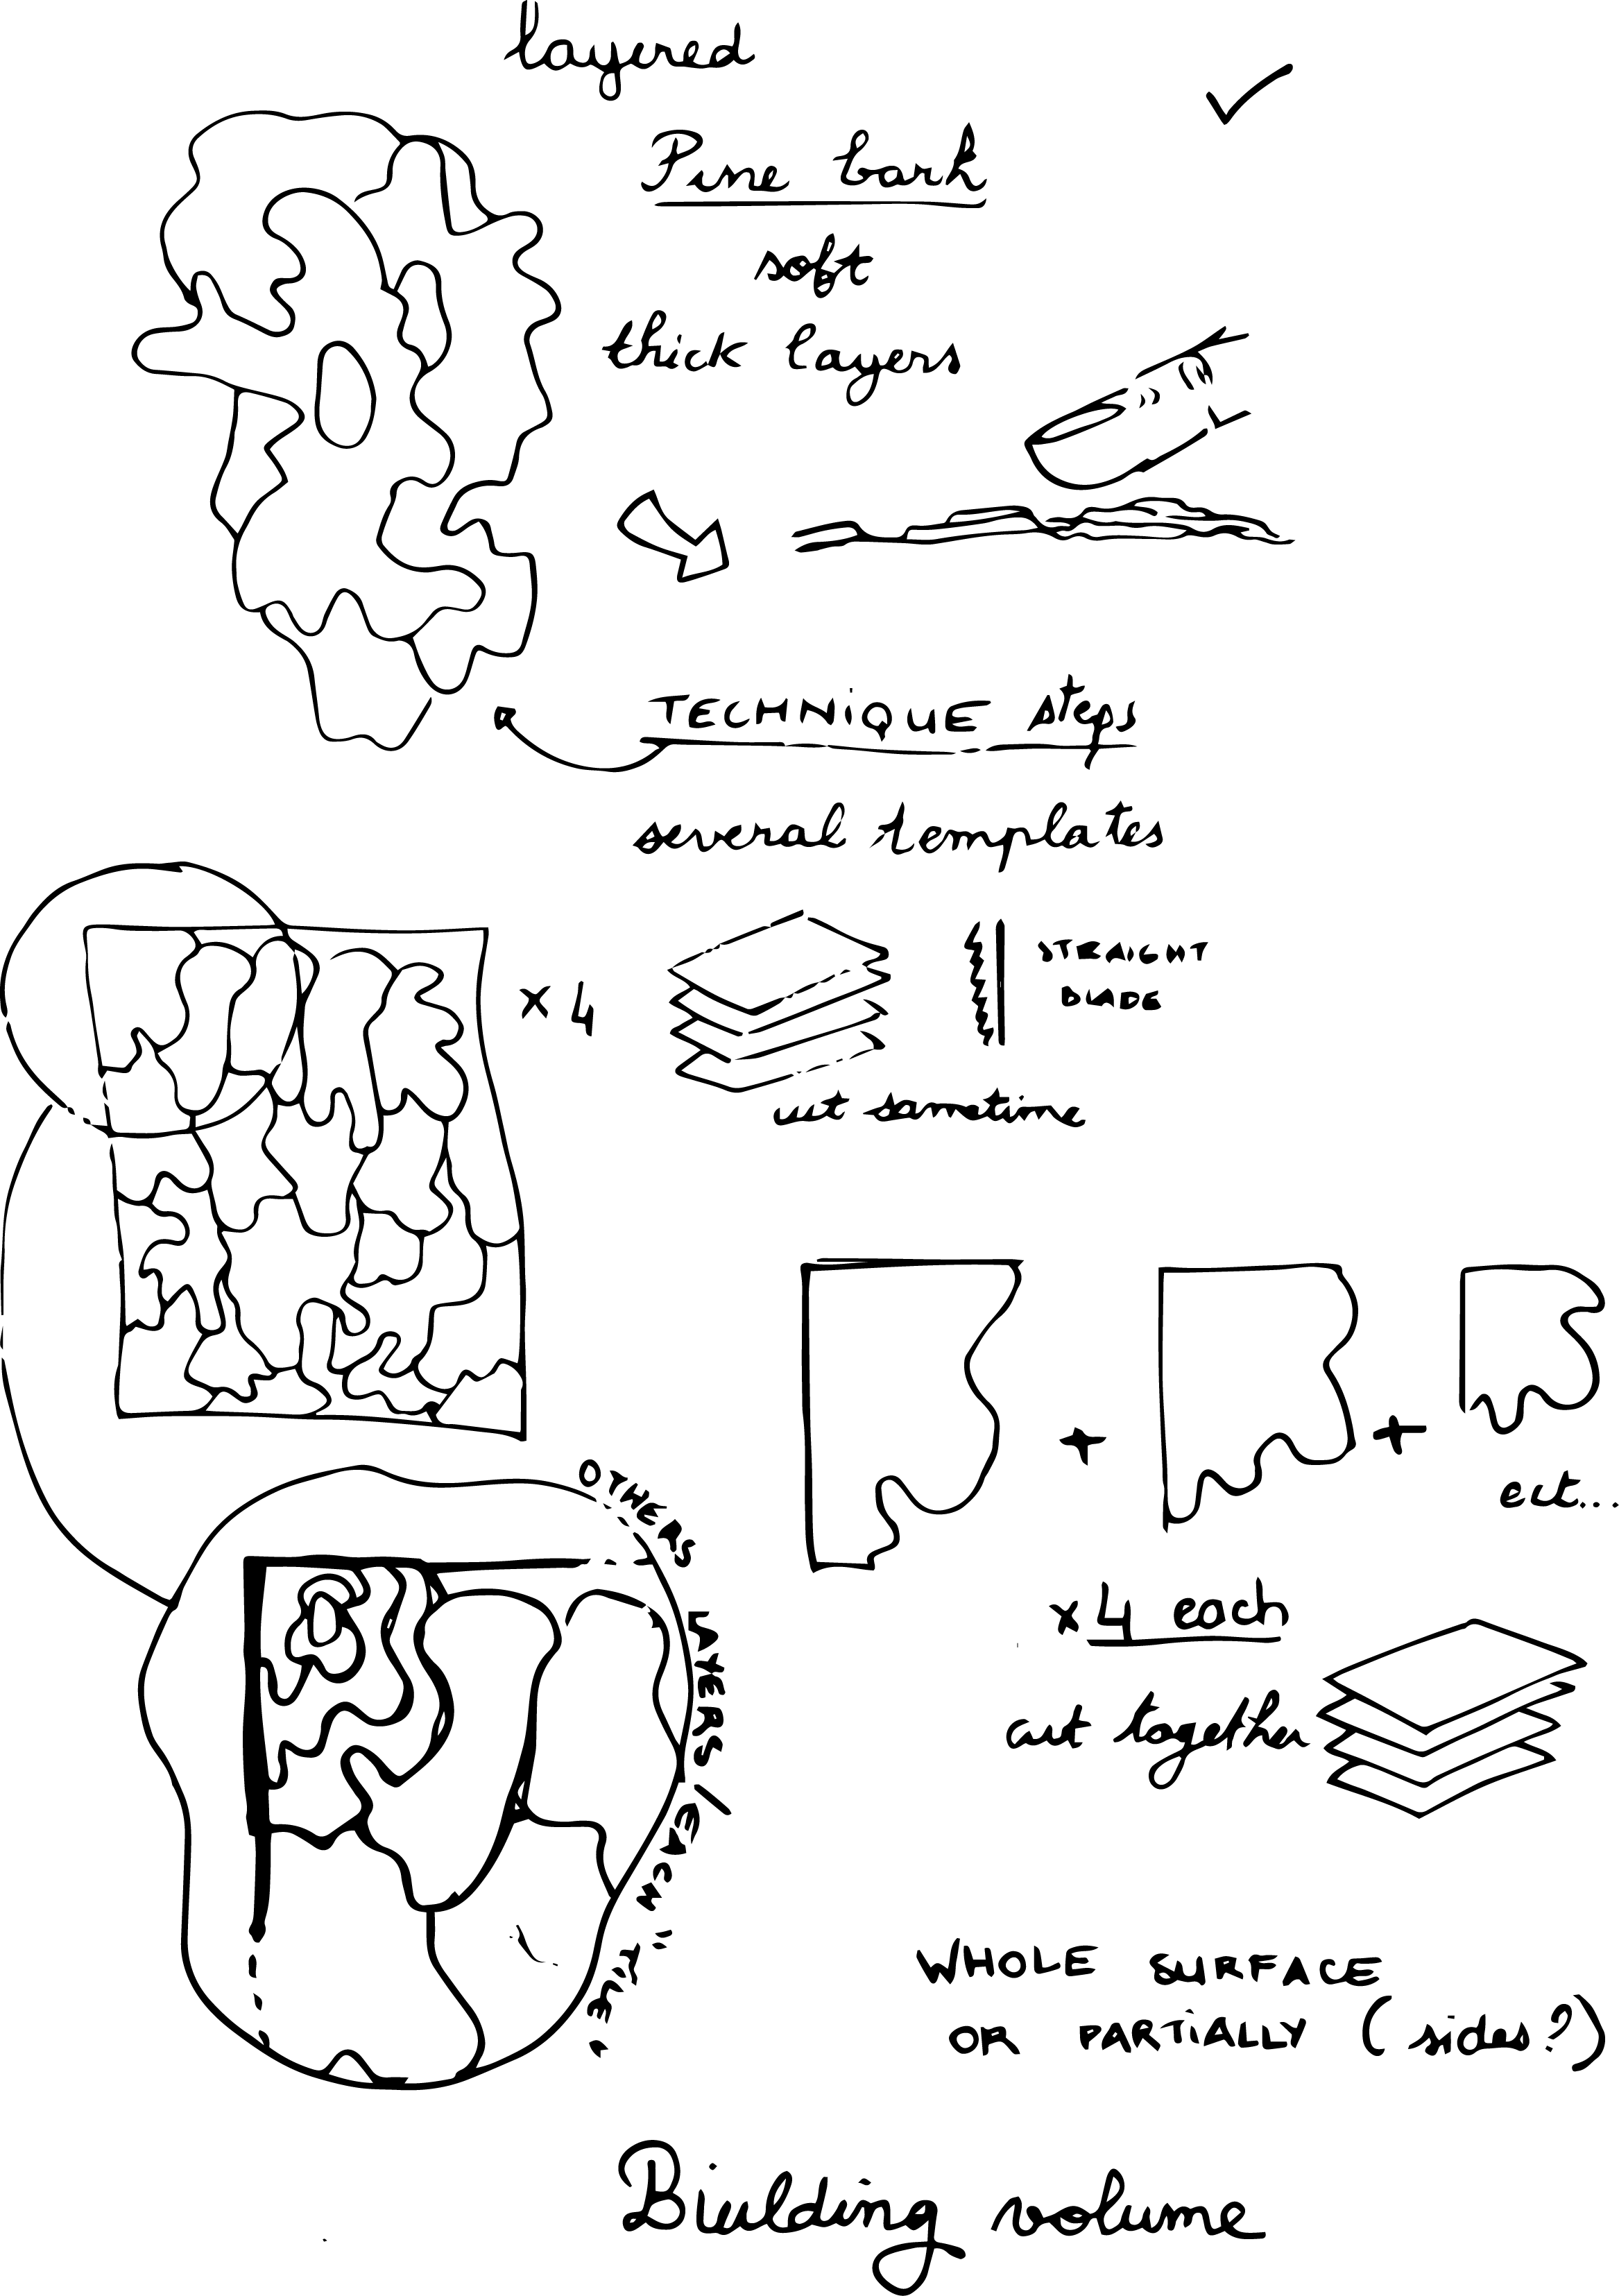 Layered
Pine bark
soft
thick layers
TECHNIQUE steps
several templates
x 4
STRAIGHT
BLADE
cut
+ +
ect...
x 4 each
cut together
LAYERS /
WHOLE SURFACE
OR PARTIALLY (sides?)
Building volume